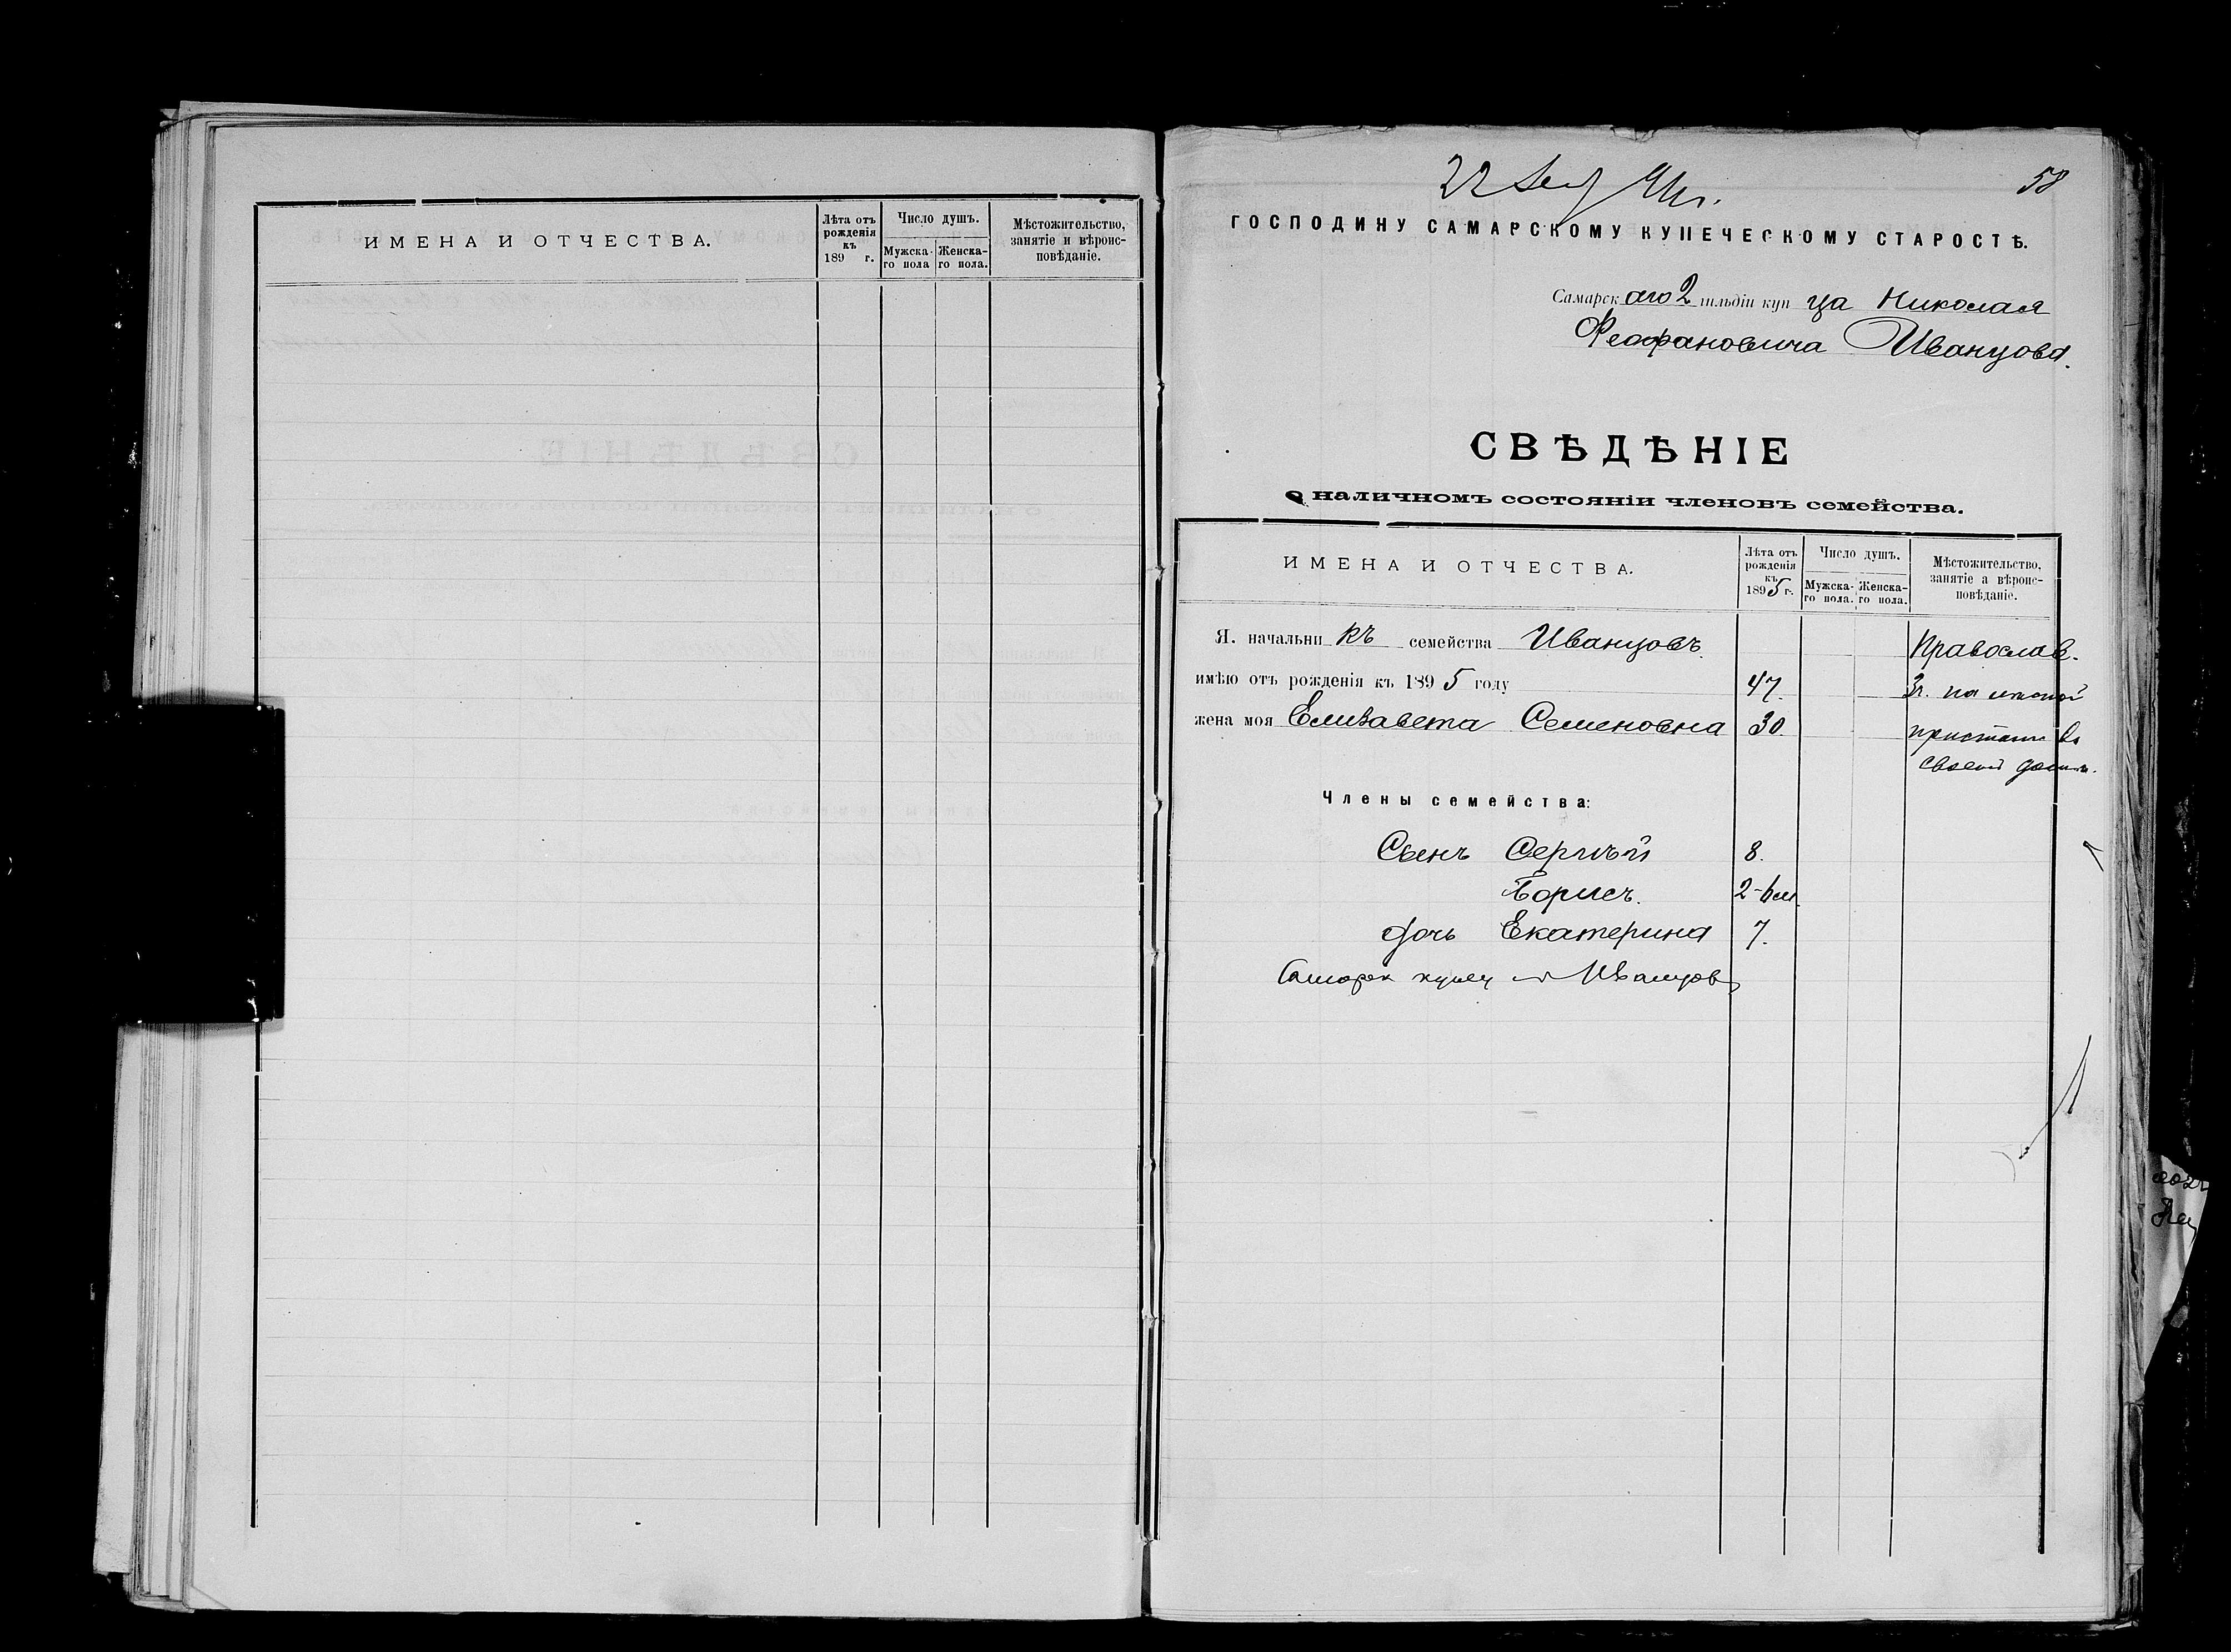 ИМЕНА И ОТЧЕСТВА.
Лѣта отъ рожденія къ 189 г.
Число душъ.
Мужска-го пола
Женска-го пола.
Мѣстожительство, занятіе и вѣроис-повѣданіе.
22 94 г.
58
ГОСПОДИНУ САМАРСКОМУ КУПЕЧЕСКОМУ СТАРОСТѢ.
Самарскаго 2 гильдіи купца Николая
Феофановича Иванцова.
СВѢДѢНІЕ
о наличномъ состояніи членовъ семейства.
ИМЕНА И ОТЧЕСТВА.
Лѣта отъ рожденія къ 1895 г.
Число душъ.
Мужска-го пола.
Женска-го пола.
Мѣстожительство, занятіе а вѣроис-повѣданіе.
Я. начальникъ семейства Иванцовъ Православ.
имѣю отъ рожденія къ 1895 году 47.
жена моя Елизавета Семеновна 30
пристани въ
своемъ домѣ.
Члены семейства:
Сынъ Сергѣй 8.
Борисъ. 2-6 м.
дочь Екатерина 7.
Самарск купец Н Иванцов